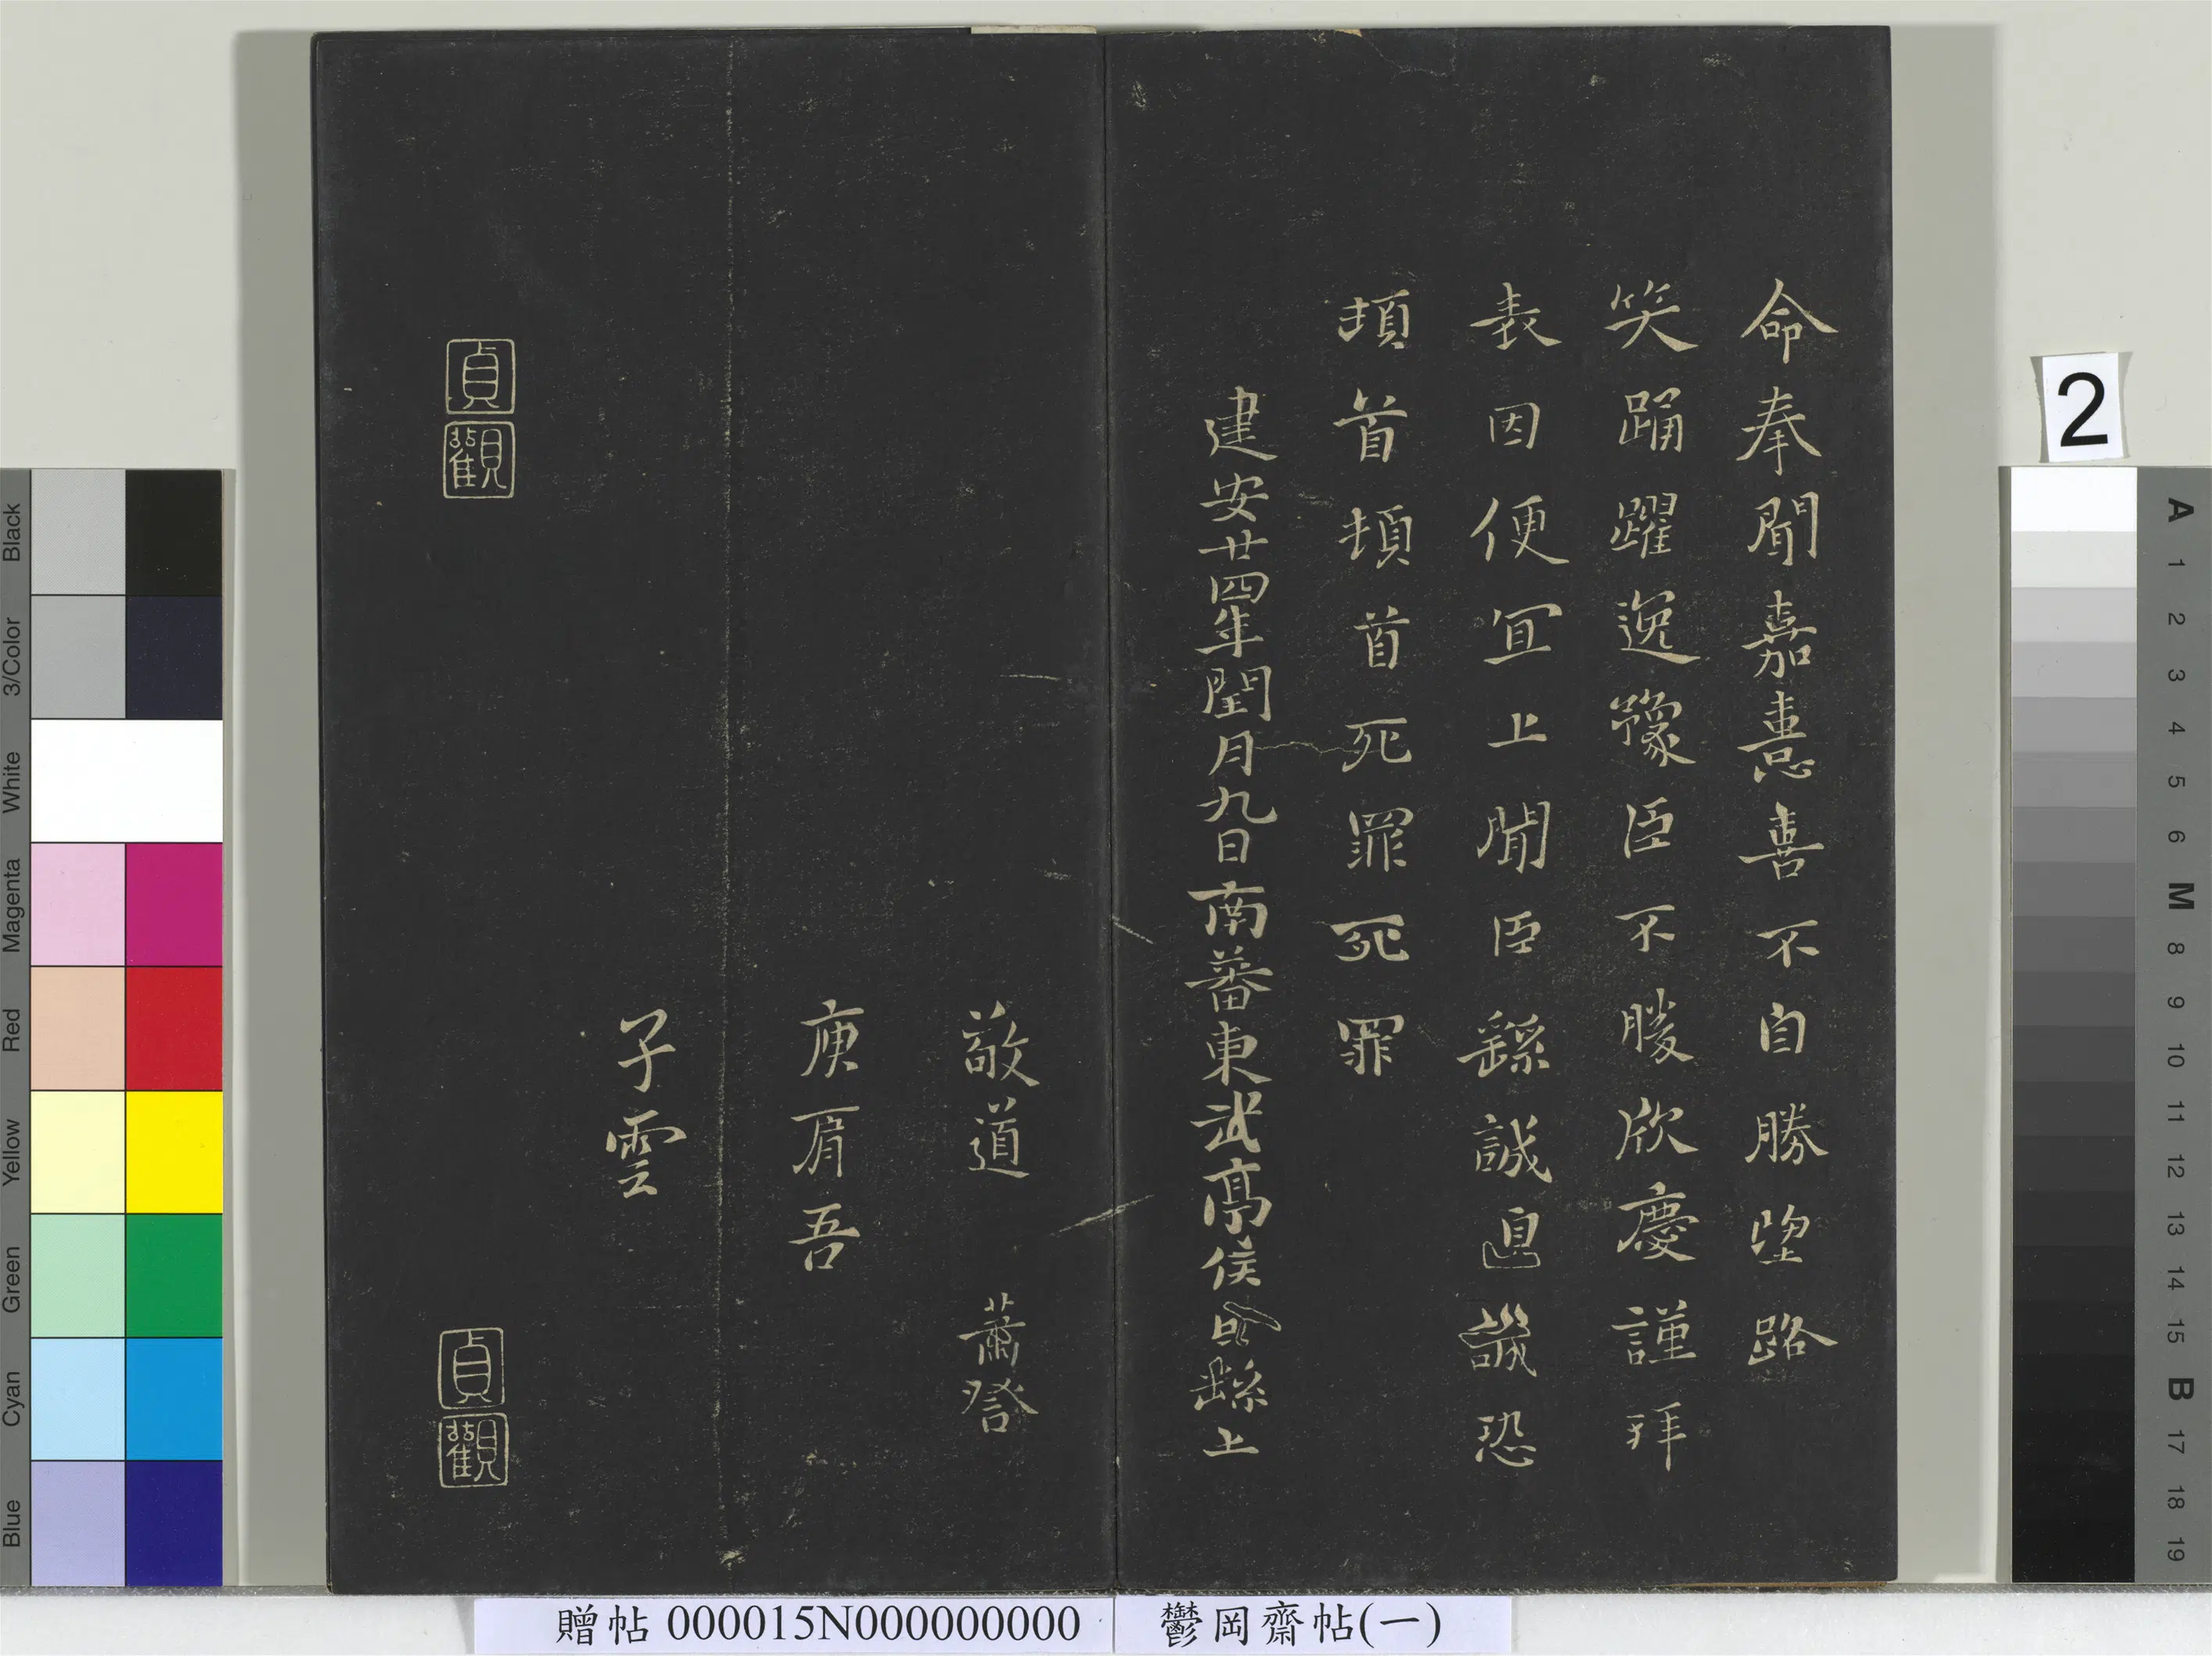 命奉聞嘉憙喜不自勝望路
笑踊躍逸豫臣不勝欣慶謹拜
表因便宜上聞臣繇誠惶誠恐
頓首頓首死罪死罪
建安廿四年閏月九日南蕃東武亭侯臣繇上
敬道 蕭詧
庾肩吾
子雲
貞觀
貞觀
贈帖 000015N000000000
鬱岡齋帖(一)
2
Black
3/Color
White
Magenta
Red
Yellow
Green
Cyan
Blue
A
1
2
3
4
5
6
M
8
9
10
11
12
13
14
15
B
17
18
19